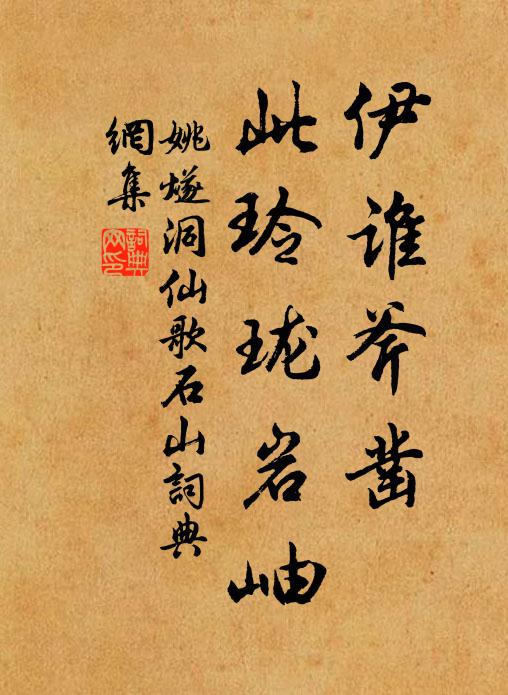 伊谁斧凿
此玲珑岩岫
姚燧洞仙歌石山詞典
網集
詞典
网印